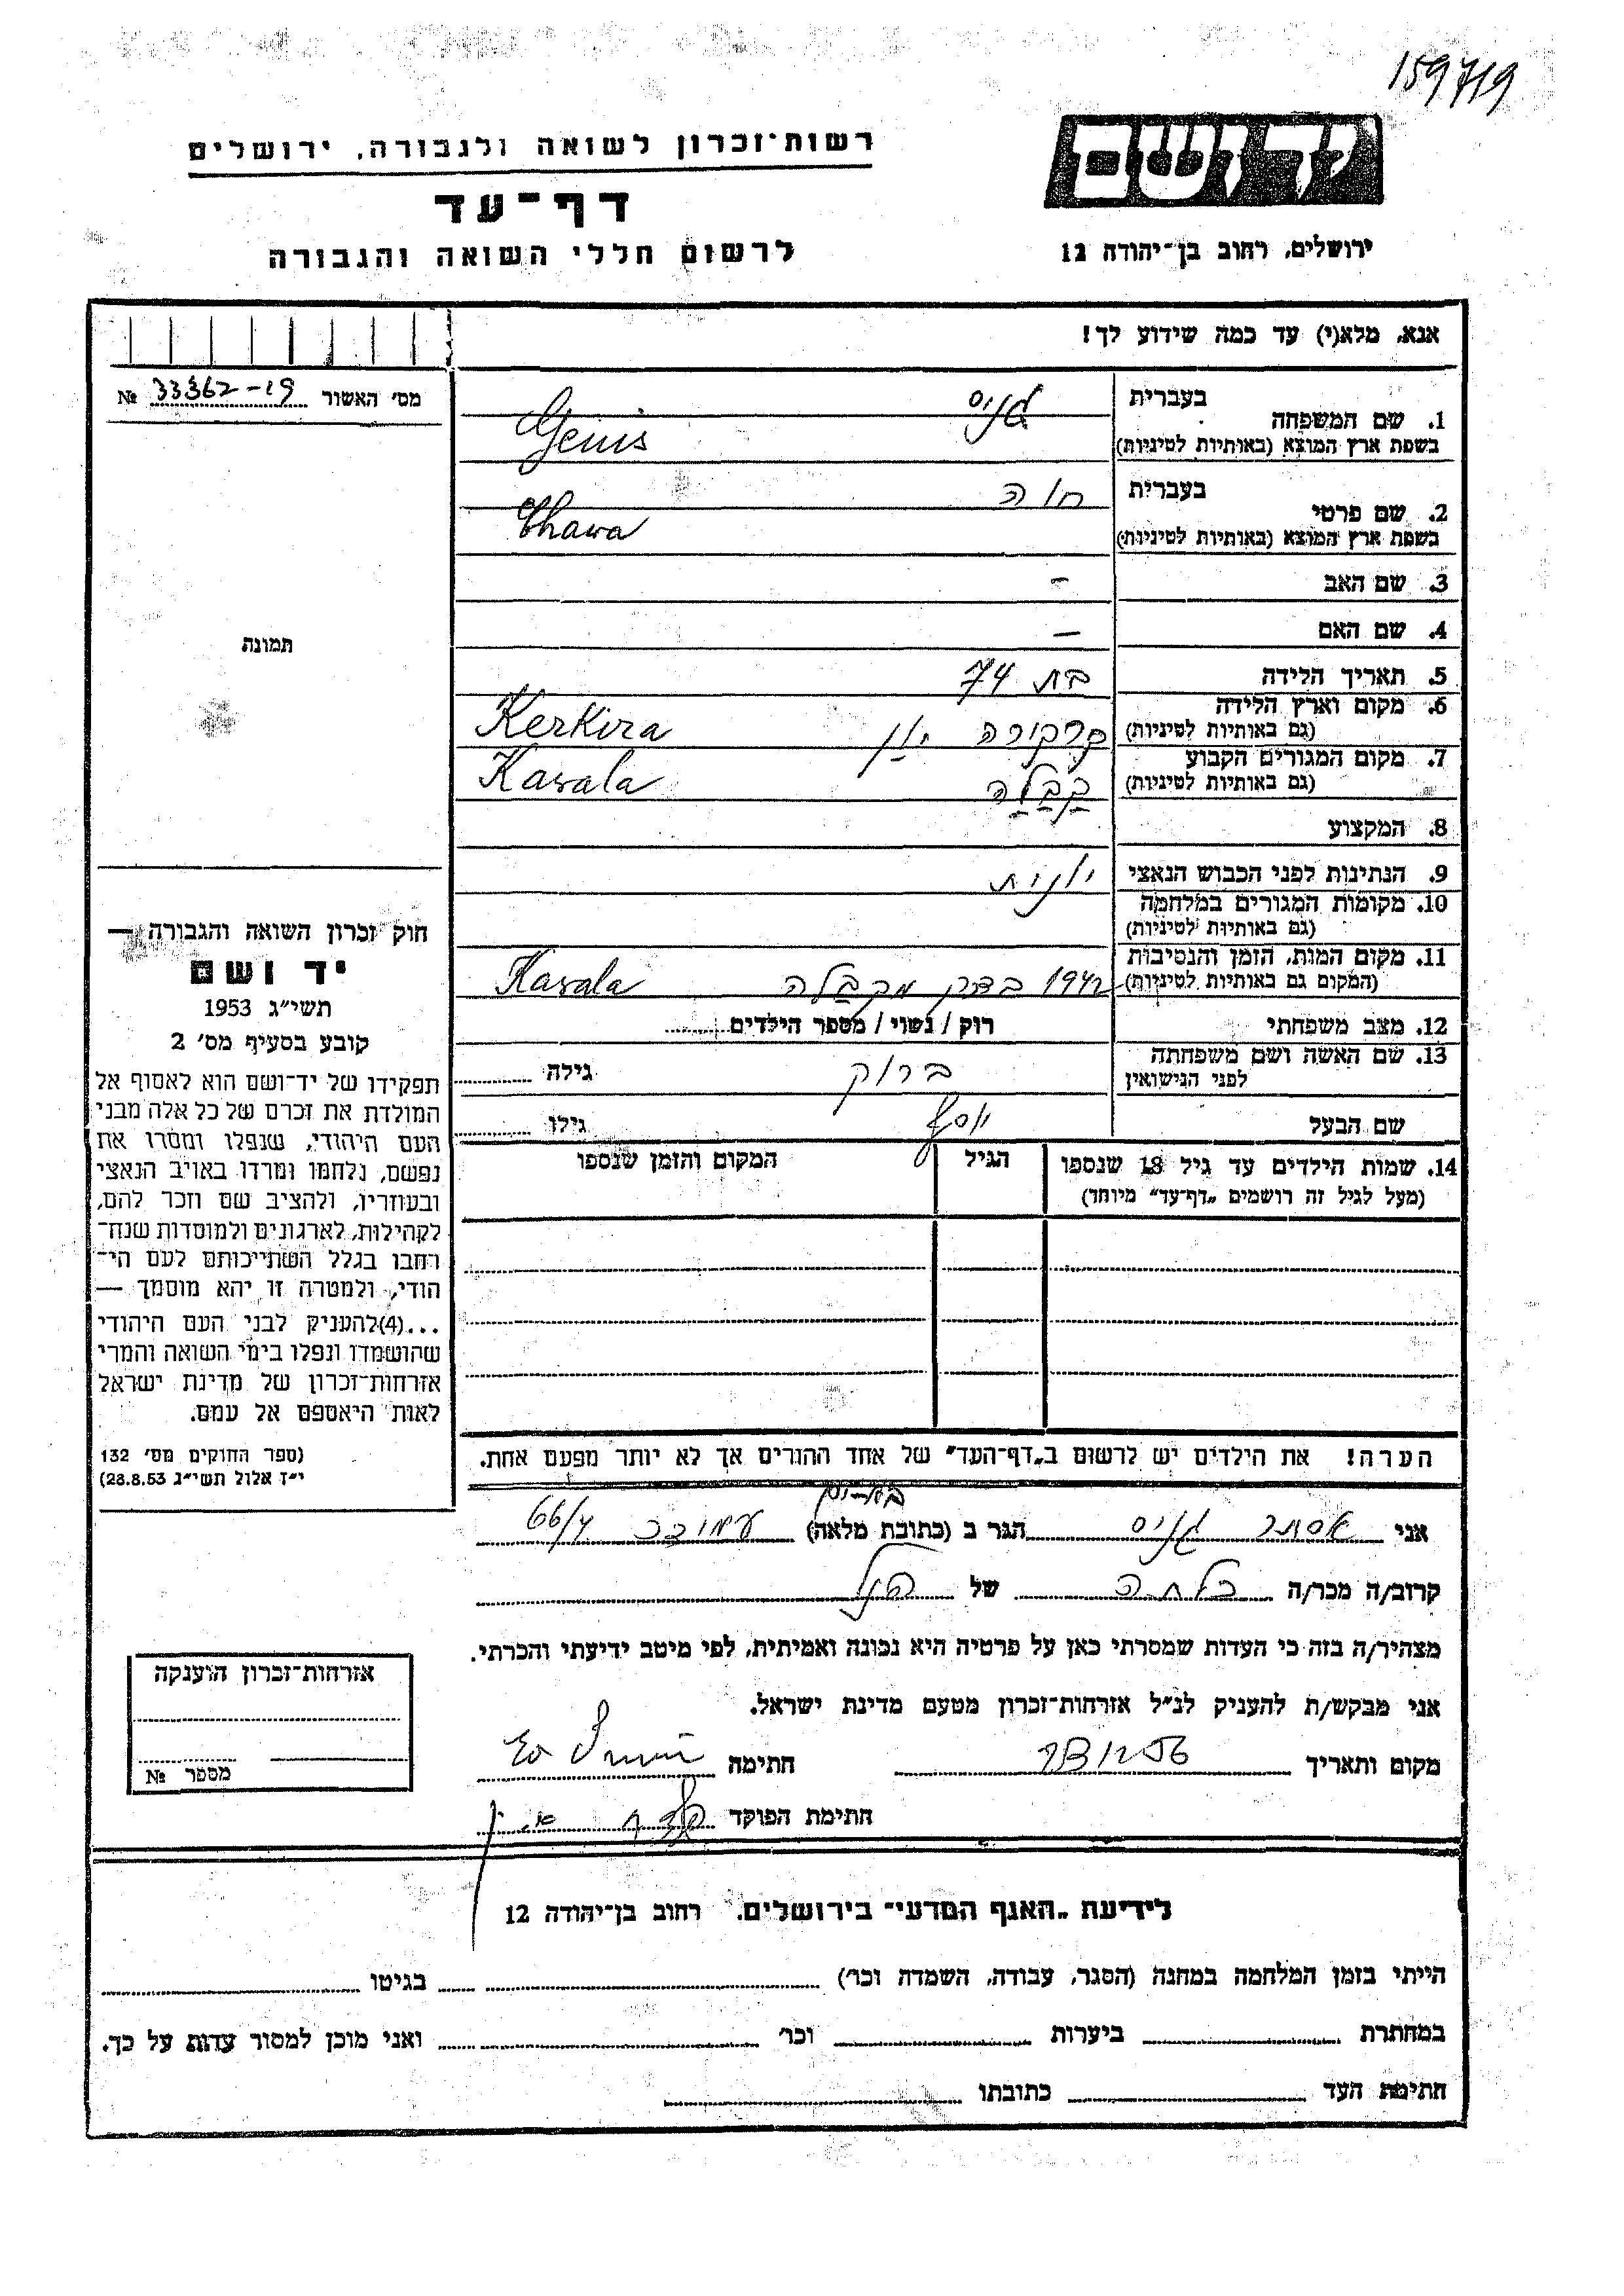 159719
רשות־זכרון לשואה ולגבורה, ירושלים
יד ושם
דף־עד
לרשום חללי השואה והגבורה
ירושלים, רחוב בן־יהודה 12
אנא, מלא(י) עד כמה שידוע לך!
מס' האשור 33362-19 №
בעברית גניס
1. שם המשפחה
בשפת ארץ המוצא (באותיות לטיניות) Genis
בעברית חוה
2. שם פרטי
בשפת ארץ המוצא (באותיות לטיניות) Chawa
3. שם האב –
4. שם האם –
תמונה
5. תאריך הלידה בת 74
6. מקום וארץ הלידה
(גם באותיות לטיניות) קרקורה יוון Kerkira
7. מקום המגורים הקבוע
(גם באותיות לטיניות) קבלה Kavala
8. המקצוע
9. הנתינות לפני הכבוש הנאצי יונית
10. מקומות המגורים במלחמה
(גם באותיות לטיניות)
11. מקום המות, הזמן והנסיבות
(המקום גם באותיות לטיניות) 1942 בדרך מקבלה Kavala
12. מצב משפחתי רוק / נשוי / מספר הילדים
13. שם האשה ושם משפחתה
לפני הנישואין ברוך גילה
שם הבעל יוסף גילו
14. שמות הילדים עד גיל 18 שנספו הגיל המקום והזמן שנספו
(מעל לגיל זה רושמים "דף־עד" מיוחד)
חוק זכרון השואה והגבורה —
יד ושם
תשי"ג 1953
קובע בסעיף מס' 2
תפקידו של יד־ושם הוא לאסוף אל
המולדת את זכרם של כל אלה מבני
העם היהודי, שנפלו ומסרו את
נפשם, נלחמו ומרדו באויב הנאצי
ובעוזריו, ולהציב שם וזכר להם,
לקהילות, לארגונים ולמוסדות שנח־
רבו בגלל השתייכותם לעם הי־
הודי, ולמטרה זו יהא מוסמך —
...(4)להעניק לבני העם היהודי
שהושמדו ונפלו בימי השואה והמרי
אזרחות־זכרון של מדינת ישראל
לאות היאספם אל עמם.
(ספר החוקים מס' 132
י"ז אלול תשי"ג 28.8.53)
הערה! את הילדים יש לרשום ב"דף־העד" של אחד ההורים אך לא יותר מפעם אחת.
אני אסתר גניס הגר ב (כתובת מלאה) 66/4
קרוב/ה מכר/ה כלתה של הנ"ל
מצהיר/ה בזה כי העדות שמסרתי כאן על פרטיה היא נכונה ואמיתית, לפי מיטב ידיעתי והכרתי.
אני מבקש/ת להעניק לנ"ל אזרחות־זכרון מטעם מדינת ישראל.
מקום ותאריך חתימה
חתימת הפוקד
אזרחות־זכרון הוענקה
מספר №
לידיעת "האגף המדעי" בירושלים, רחוב בן־יהודה 12
הייתי בזמן המלחמה במחנה (הסגר, עבודה, השמדה וכו') בגיטו
במחתרת ביערות וכו' ואני מוכן למסור עדות על כך.
חתימת העד כתובתו